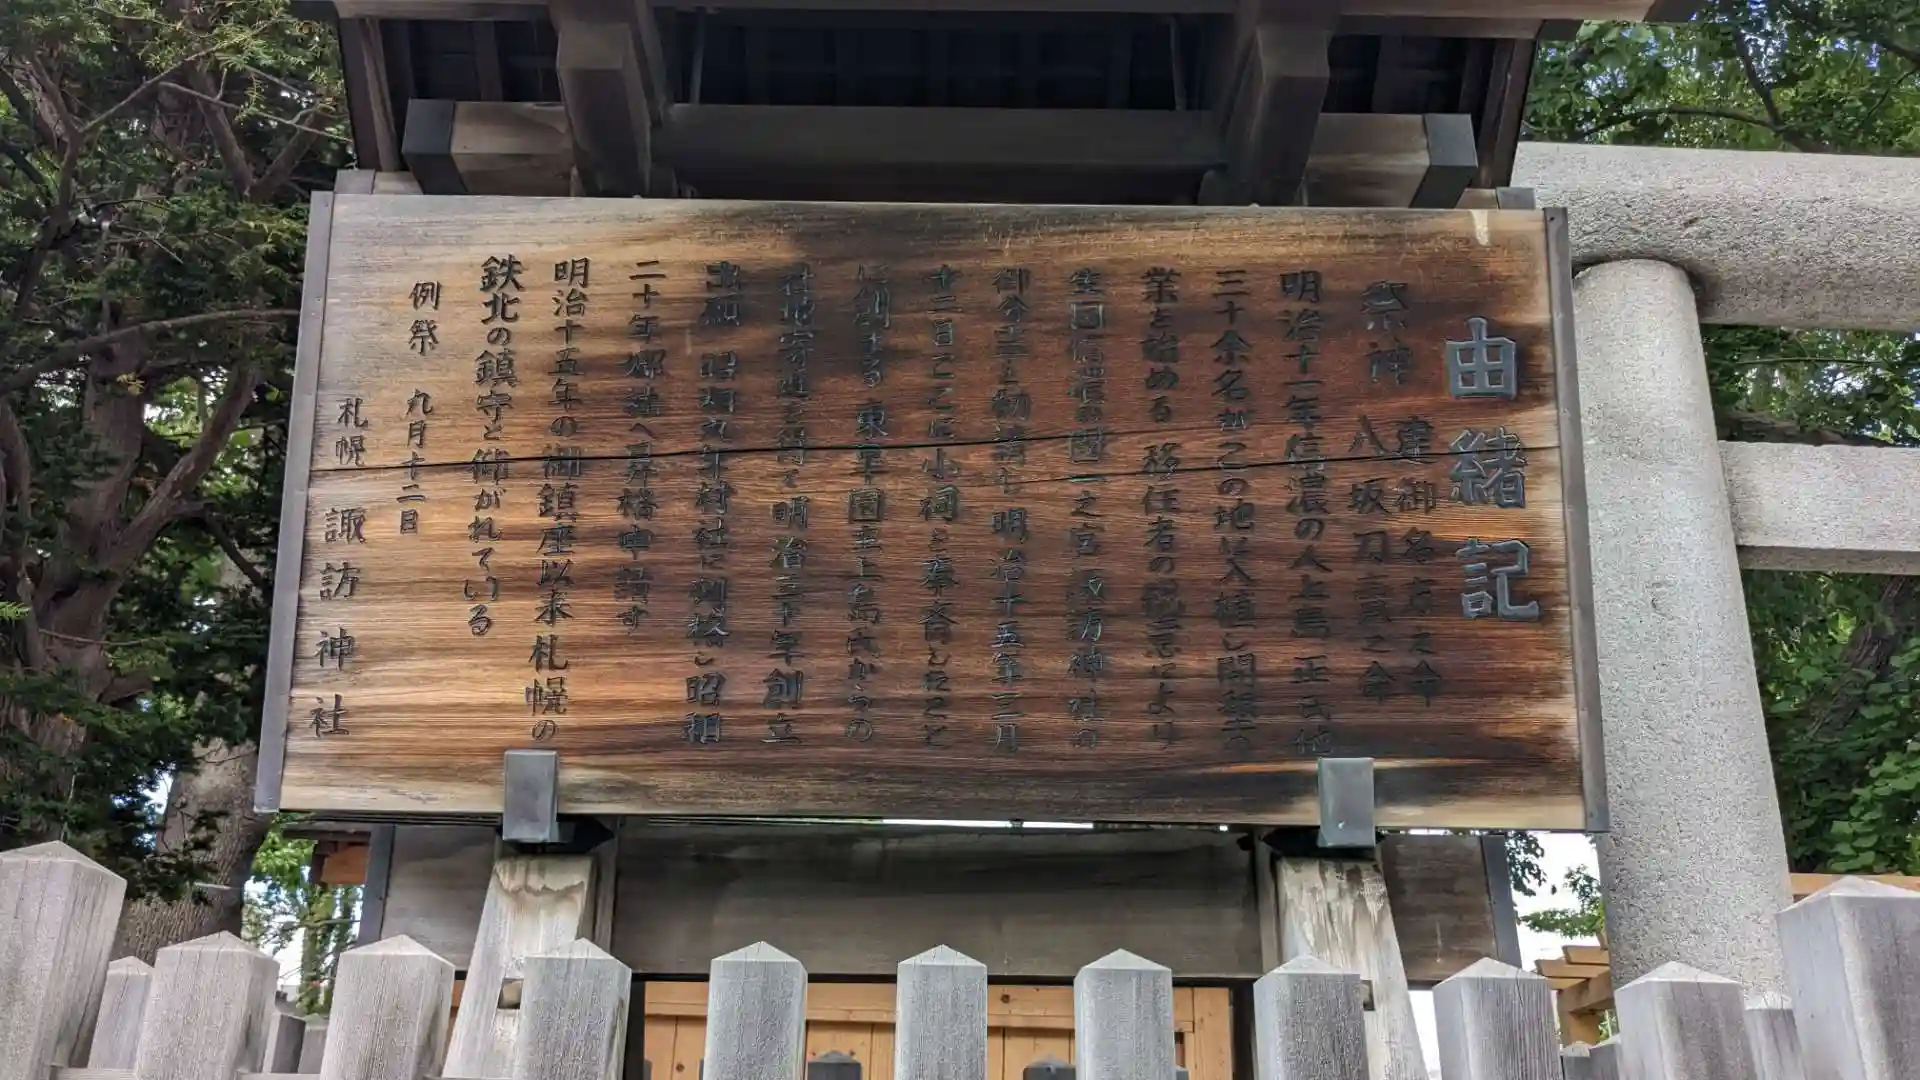 由緒記
祭神 建御名方之命
八坂刀売之命
明治十一年信濃の人上島 正氏他
三十余名がこの地に入植し開墾の
業を始める 移住者の総意により
生国信濃の国一之宮諏訪神社の
御分霊を勧請し明治十五年三月
十二日ここに小祠を奉斎したこと
に創まる 東皐園主上島氏からの
社地寄進を得て明治三十年創立
出願 昭和九年村社に列格し昭和
二十年郷社へ昇格申請す
明治十五年の御鎮座以来札幌の
鉄北の鎮守と仰がれている
例祭 九月十二日
札幌 諏訪神社